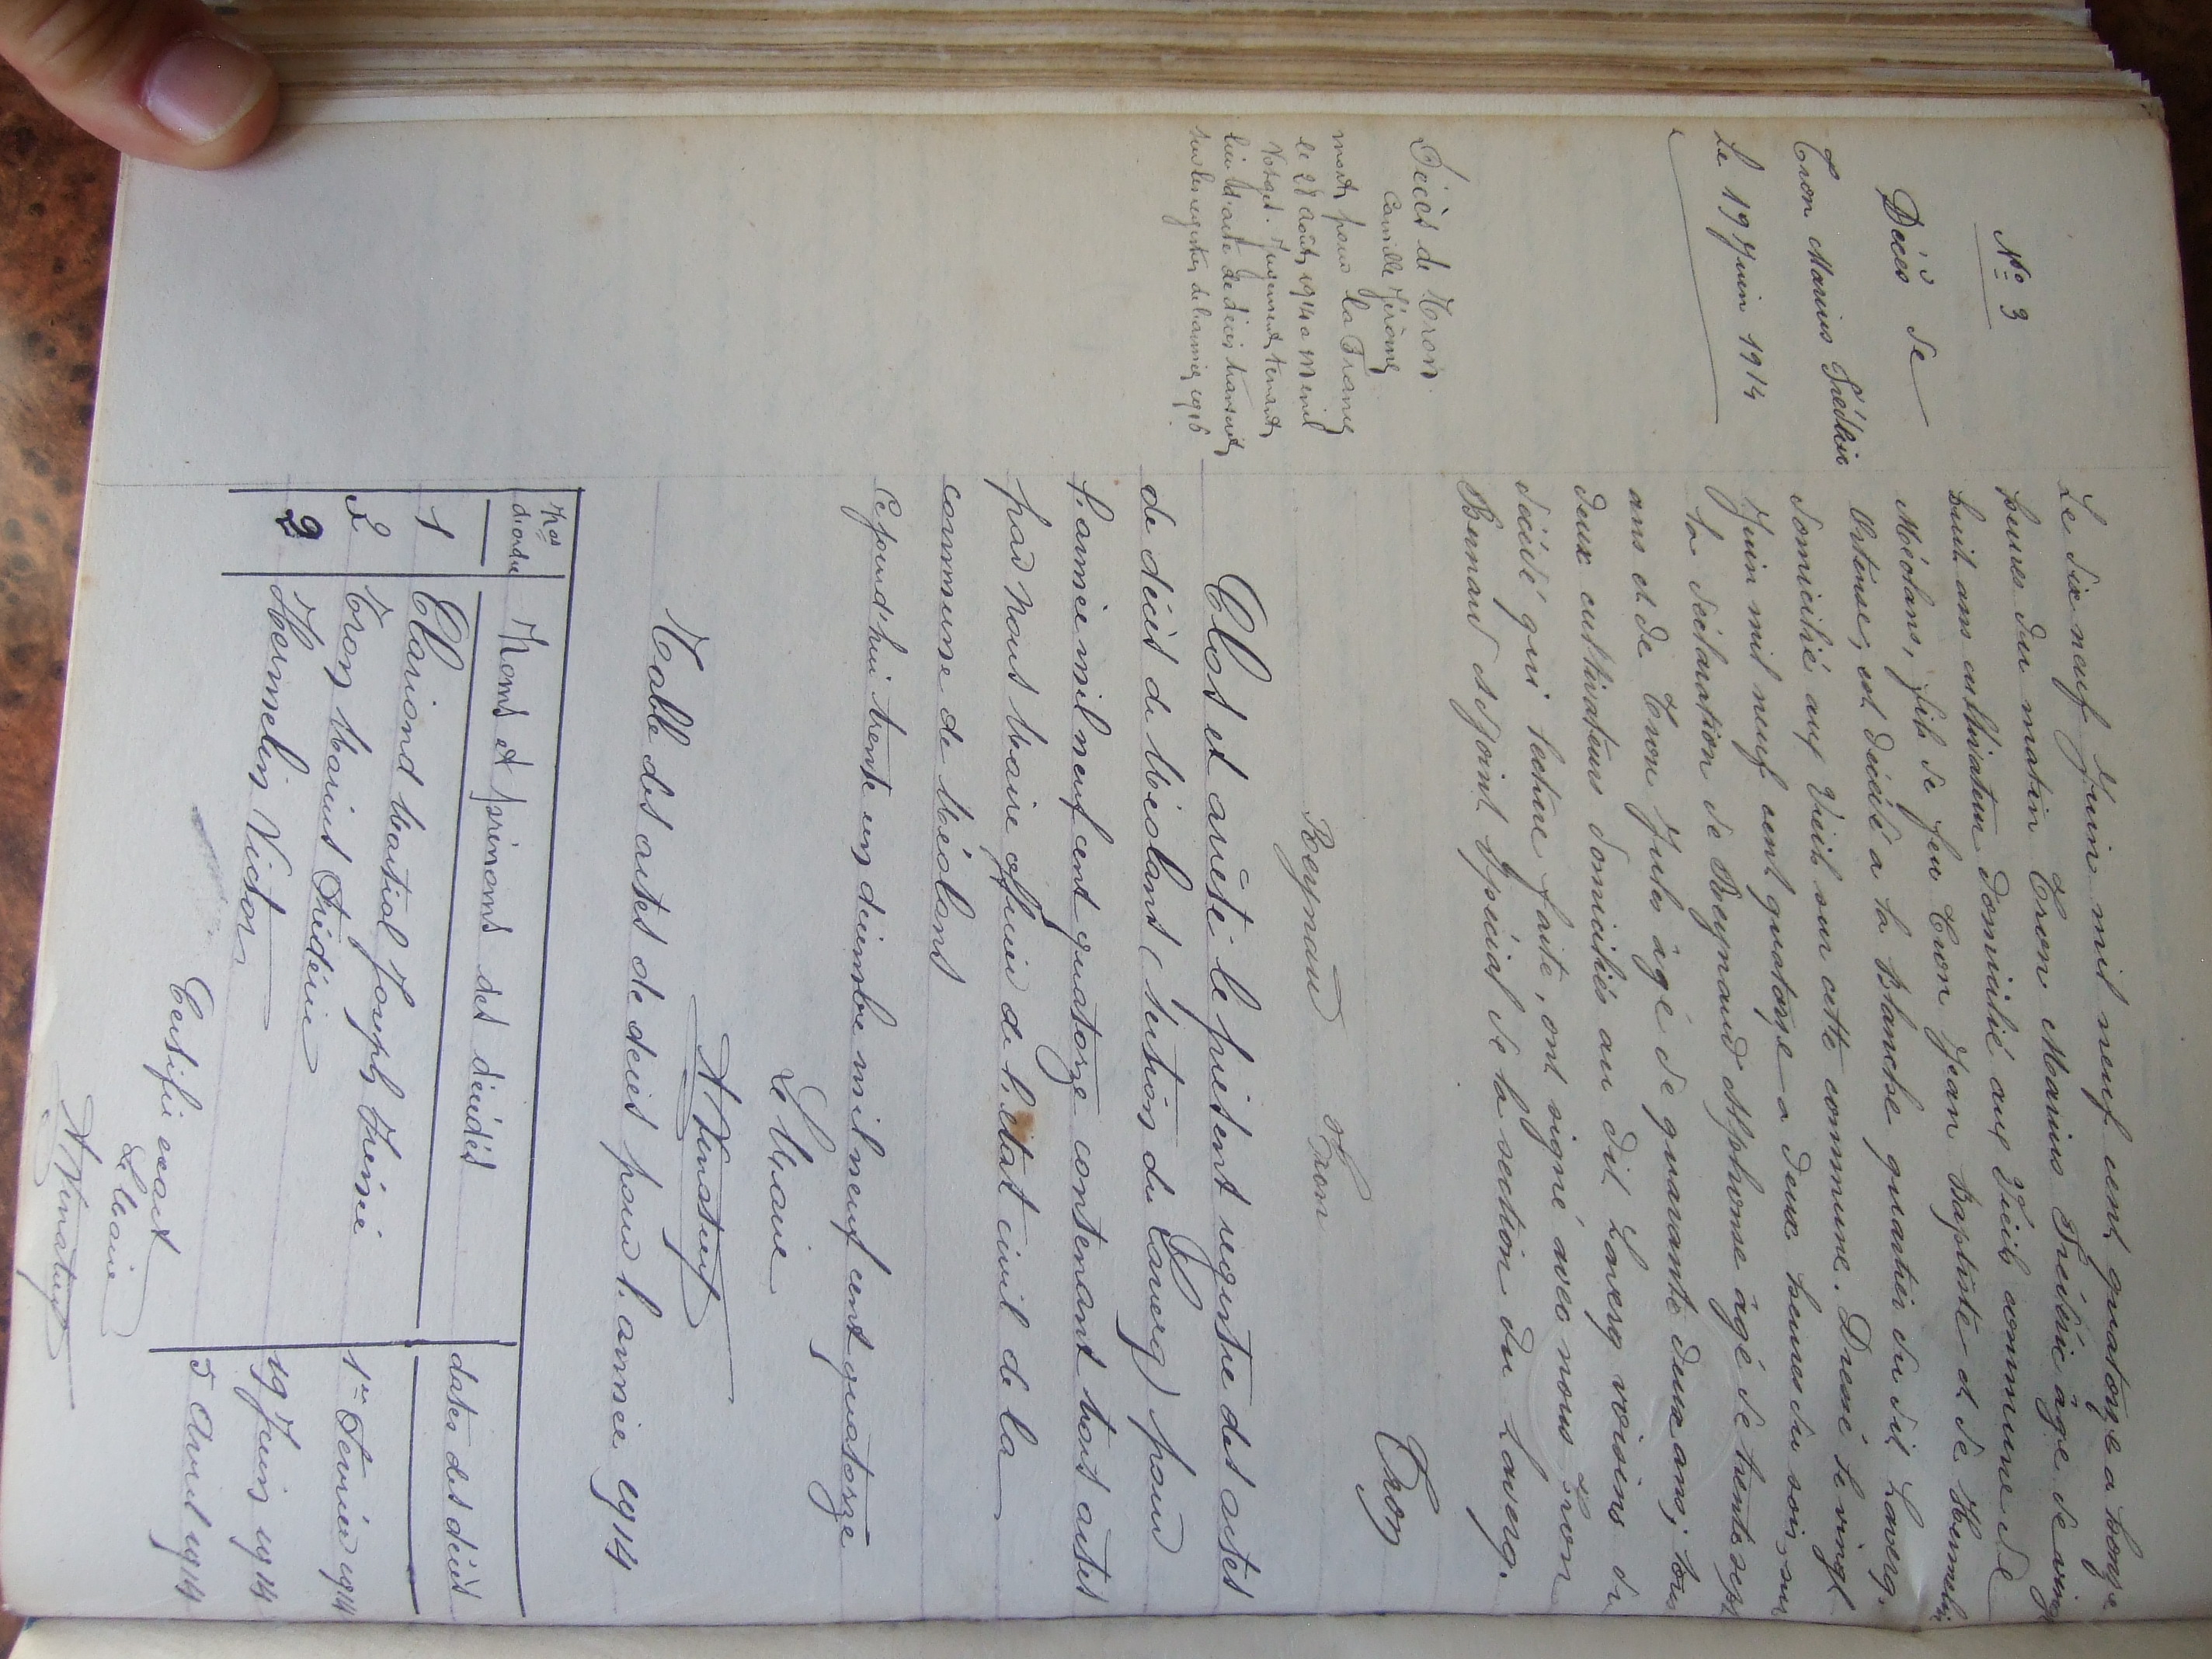 N° 3
Décès de
Tron Marius Frédéric
Le 19 Juin 1914
Le dix neuf Juin mil neuf cent quatorze a bonze
heures du matin Tron Marius Frédéric âgé de vingt
huit ans cultivateur domicilié aux Vieils commune de
Méolans, fils de feu Tron Jean Baptiste et de Hermelin
Ortense, est décédé a la Blanche quartier du dit Laverq.
domicilié aux Vieils sur cette commune. Dressé le vingt
Juin mil neuf cent quatorze a deux heures du soir, sur
la déclaration de Reynaud Alphonse âgé de trente sept
ans et de Tron Jules âgé de quarante deux ans; tous
deux cultivateurs domiciliés au dit Laverq voisins du
décédé qui lecture faite, ont signé avec nous Tron
Bernard adjoint spécial de la section du Laverq.
Reynaud Tron Tron
Décès de Tron
Camille Jérôme
mort pour la France
le 28 août 1914 a Ménil
Vosges. Jugement tenant
lieu d'acte de décès transcrit
sur les registres de l'année 1916
Clos et arrêté le présent registre des actes
de décès de Méolans (section du Laverq) pour
l'année mil neuf cent quatorze contenant trois actes
par nous Maire officier de l'état civil de la
commune de Méolans
Cejourd'hui trente un décembre mil neuf cent quatorze
Le Maire
Table des actes de décès pour l'année 1914
Nos d'ordre Noms et prénoms des décédés dates des décès
1 Clariond Martial Joseph Firmin 1er Février 1914
2 Tron Marius Frédéric 19 Juin 1914
2 Hermelin Victor 5 Avril 1914
Certifié exact
Le Maire